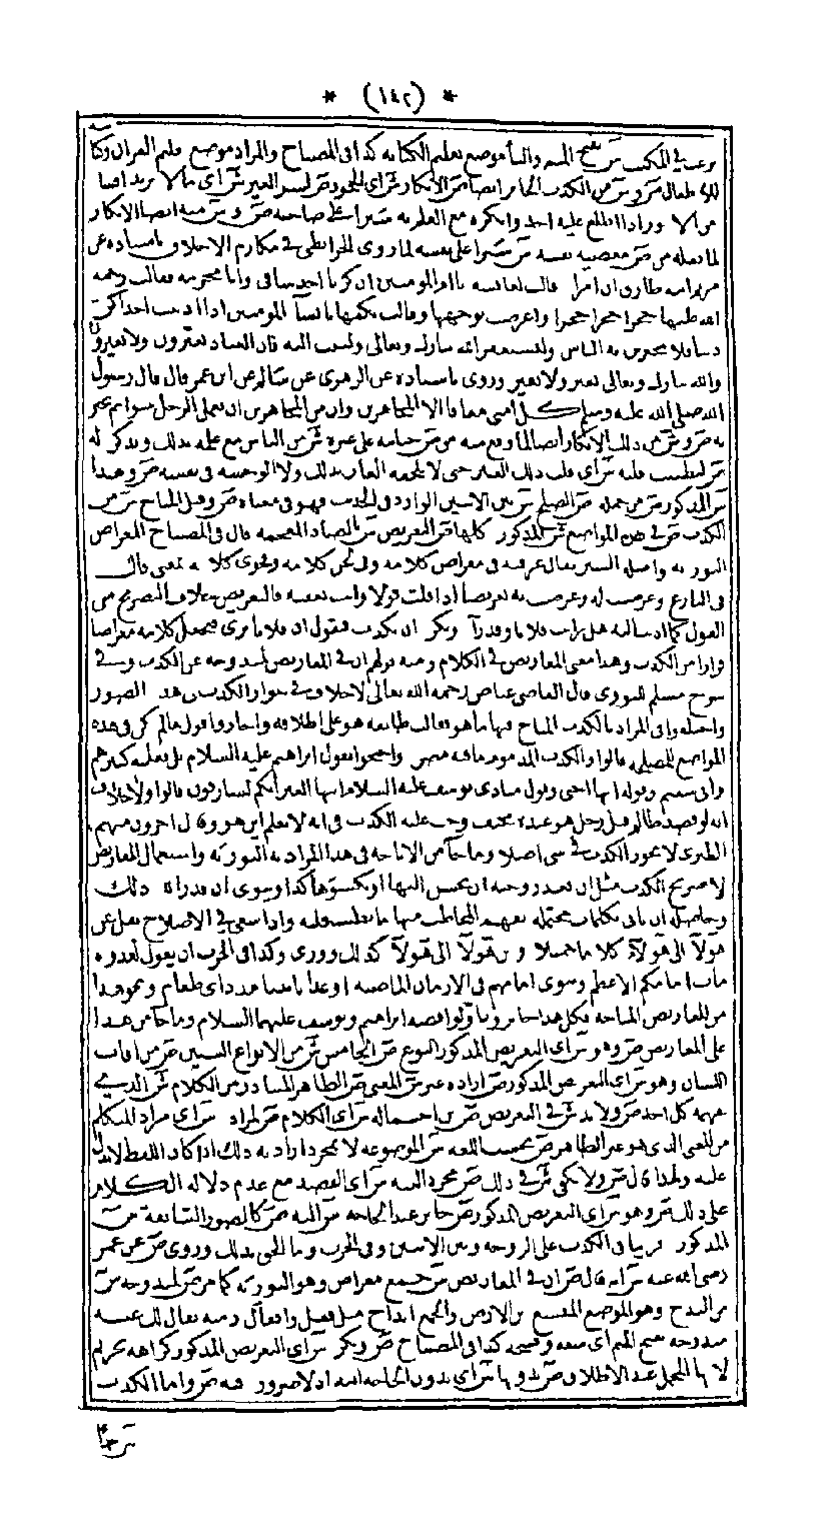 * (١٤٢) *
المكتب ش بفتح الميم والتاء موضع تعليم الكتابة كذا في المصباح والمراد موضع تعليم القرآن وكتابته
للأطفال ص و ش من الكذب الجائز أيضا ص الإنكار ش أي الجحود ص لسر الغير ش أي ما لا يريد إفشاءه
اطلع عليه أحد وأنكره مع العلم به سترا على صاحبه ص و ش منه أيضا الإنكار
لما فعله من ص معصية نفسه ش سترا على نفسه لما روى الخرائطي في مكارم الأخلاق بإسناده عن
طارق أن امرأة قالت لعائشة يا أم المؤمنين إن كريا أخذ بساقي وأنا محرمة فقالت رحمة
الله عليها حجرا حجرا حجرا وأعرضت بوجهها وقالت بكفها يا نساء المؤمنين إذا أذنبت إحداكن
ذنبا فلا تخبرن به الناس ولتستغفر الله تبارك وتعالى ولتتب إليه فإن العباد يعيرون ولا يغيرون
والله تبارك وتعالى يغير ولا يعير وروى بإسناده عن الزهري عن سالم عن ابن عمر قال قال رسول
الله صلى الله عليه وسلم كل أمتي معافا إلا المجاهرين وإن من المجاهرين أن يعمل الرجل سوأ ثم يخبر
به ص و ش من ذلك الإنكار أيضا لما وقع منه من ص جنايته على غيره ش من الناس مع علمه بذلك وينكر له
ص ليطيب قلبه ش أي قلب ذلك الغير حتى لا يلحقه العار بذلك ولا الوحشة في نفسه ص وهذا
ش المذكور ص من جملة ص الصلح ش بين الاثنين الوارد في الحديث فهو في معناه ص وقيل المباح ش من
الكذب ص في هذه المواضع ش المذكورة كلها ص التعريض ش بالضاد المعجمة قال في المصباح المعراض
التورية وأصله الستر يقال عرفته في معراض كلامه وفي لحن كلامه وفحوى كلامه بمعنى قال
في البارع وعرضت له وعرضت به تعريضا إذا قلت قولا وأنت تعنيه فالتعريض خلاف التصريح من
القول كما إذا سألته هل رأيت فلانا وقد رآه ويكره أن يكذب فيقول إن فلانا ليرى فيجعل كلامه معراضا
فرارا من الكذب وهذا معنى المعاريض في الكلام ومنه قولهم إن في المعاريض لمندوحة عن الكذب وفي
شرح مسلم للنووي قال القاضي عياض رحمه الله تعالى لا خلاف في جواز الكذب في هذه الصور
واختلفوا في المراد بالكذب المباح فيها ما هو فقالت طائفة هو على إطلاقه وأجازوا قول ما لم يكن في هذه
المواضع للمصلحة قالوا والكذب المذموم ما فيه مضرة واحتجوا بقول إبراهيم عليه السلام بل فعله كبيرهم
وإني سقيم وقوله إنها أختي وقول منادي يوسف عليه السلام أيتها العير إنكم لسارقون قالوا ولا خلاف
أنه لو قصد ظالم قتل رجل هو عنده مختف وجب عليه الكذب في أنه لا يعلم أين هو وقال آخرون منهم
الطبري لا يجوز الكذب في شيء أصلا وما جاء من الإباحة في هذا المراد به التورية واستعمال المعاريض
لا صريح الكذب مثل أن يعد زوجته أن يحسن إليها أو يكسوها كذا وينوي إن قدر الله ذلك
وحاصله أن يأتي بكلمات محتملة يفهم المخاطب منها ما يطيب قلبه وإذا سعى في الإصلاح نقل عن
هؤلاء إلى هؤلاء كلاما جميلا ومن هؤلاء إلى هؤلاء كذلك وورى وكذا في الحرب أن يقول لعدوه
مات إمامكم الأعظم وينوي إمامهم في الأزمان الماضية أو غدا يأتينا مدد أي طعام ونحو هذا
من المعاريض المباحة فكل هذا جائز وتأولوا قصة إبراهيم ويوسف عليهما السلام وما جاء من هذا
على المعاريض ص وهو ش أي التعريض المذكور النوع ص الخامس ش من الأنواع الستين ص من آفات
اللسان وهو ش أي التعريض المذكور ص إرادة غير ش المعنى ص الظاهر المتبادر من الكلام ش الذي
يفهمه كل أحد ص ولا بد ش في التعريض ص من احتماله ش أي الكلام ص لمراده ش أي مراد المتكلم
من المعنى الذي هو غير الظاهر ص بحسب اللغة ش الموضوعة لا بمجرد إرادته ذلك إذا كان اللفظ لا يدل
عليه ولهذا قال ص ولا يكفي ش في ذلك ص مجرد النية ش أي القصد مع عدم دلالة الكلام
على ذلك ص وهو ش أي التعريض المذكور ص جائز عند الحاجة ش إليه ص كالصور السابقة ش
المذكورة قريبا في الكذب على الزوجة وبين الاثنين وفي الحرب وما ألحق بذلك وروي ص عن عمر
رضي الله عنه ش أنه قال ص إن في المعاريض ش جمع معراض وهو التورية كما مر ص لمندوحة ش
من الندح وهو الموضع المتسع من الأرض والجمع أنداح مثل قفل وأقفال ومنه يقال لك عنه
مندوحة بفتح الميم أي سعة وفسحة كذا في المصباح ص ويكره ش أي التعريض المذكور كراهة تحريم
لأنها المحمل عند الإطلاق ص بدونها ش أي بدون الحاجة إليه إذ لا ضرورة فيه ص وأما الكذب